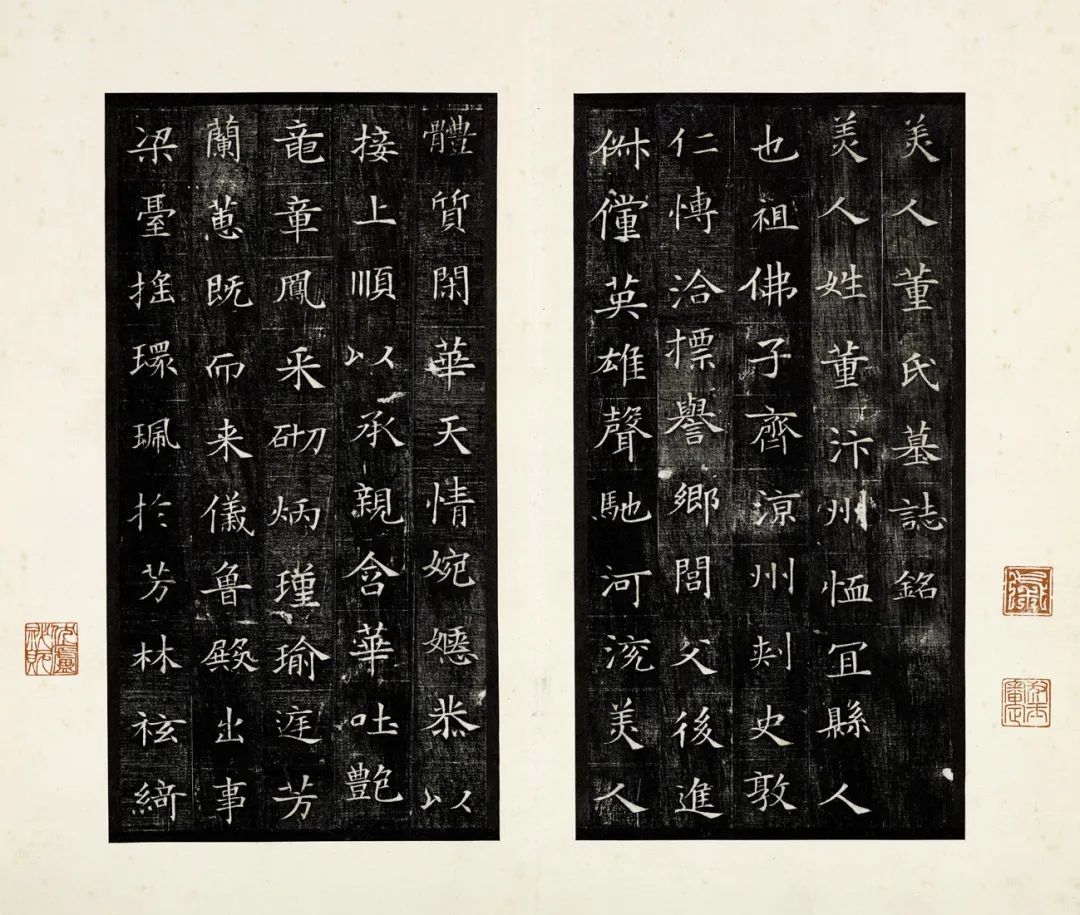 美人董氏墓誌銘
美人姓董汴州恤冝縣人
也祖佛子齊涼州刾史敦
仁愽洽摽譽鄉閭父後進
俶儻英雄聲馳河渷美人
體質閑華天情婉嫕恭以
接上順以承親含華吐艶
竜章鳳采砌炳瑾瑜庭芳
蘭蕙既而来儀魯殿出事
梁臺搖環珮於芳林袨綺